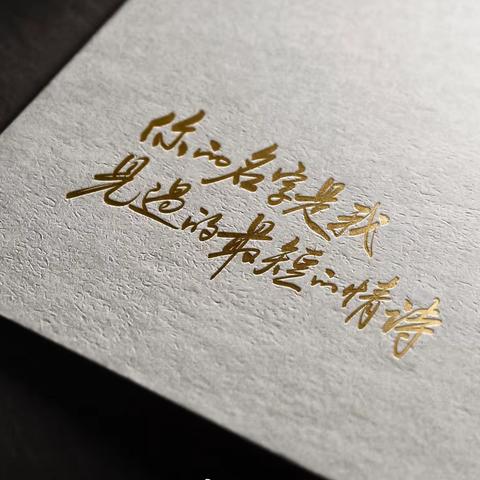 你的名字是我
见过的最短的情诗